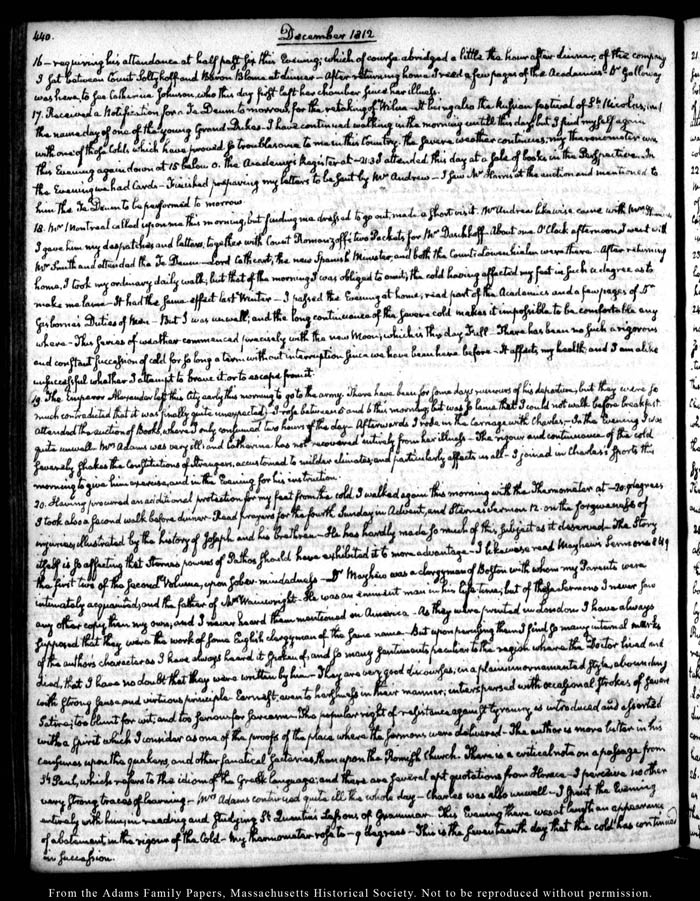 440.
December 1812
16 - requiring his attendance at half past six this Evening; which of course abridged a little the hour after dinner, of the company
I sat between Count Soltykoff and Baron Blome at dinner - After returning home I read a few pages of the Academics. Dr Galloway
was here, to see Catherine Johnson, who this day first left her chamber since her illness.
17. Received a Notification for a Te Deum to morrow, for the retaking of Wilna - It being also the Russian festival of St. Nicolas, and
the name day of one of the young Grand Dukes. I have continued walking in the morning untill this day but I find myself again
with one of those Colds, which have proved so troublesome to me in this Country. The severe weather continues; my thermometer was
this Evening again down at 15 below 0. the Academy's Register at -21.3 I attended this day at a sale of books in the Perspective. In
the Evening we had Cards - Finished preparing my letters to be sent by Mr Andrew - I saw Mr Harris at the auction and mentioned to
him the Te Deum to be performed to morrow.
18. Mr Montreal called upon me this morning, but finding me dressed to go out made a short visit. Mr Andrew likewise came with Mr
I gave him my despatches and letters, together with Count Romanzoff's two Packets for Mr Daschkoff. About one O'Clock afternoon I went with
Mr Smith and attended the Te Deum - Lord Cathcart, the new Spanish Minister, and both the Counts Lowenhielm were there. - After returning
home, I took my ordinary daily walk; but that of the morning I was obliged to omit; the cold having affected my feet in such a degree as to
make me lame. It had the same effect last Winter - I passed the Evening at home; read part of the Academics and a few pages of
Gisborne's Duties of Men - But I was unwell; and the long continuance of the severe cold makes it impossible to be comfortable any
where - This series of weather commenced precisely with the new Moon; which is this day Full - There has been no such a rigorous
and constant succession of cold for so long a term without interruption since we have been here before - It affects my health; and I am alike
unsuccessful whether I attempt to brave it or to escape from it
19. The Emperor Alexander left this City early this morning to go to the army. There have been for some days rumours of his departure, but they were so
much contradicted that it was finally quite unexpected - I rose between 5 and 6 this morning; but was so lame that I could not walk before breakfast.
Attended the auction of Books, where I only consumed two hours of the day - Afterwards I rode in the Carriage with Charles. - In the Evening I was
quite unwell. Mrs Adams was very ill; and Catharine has not recovered entirely from her illness. - The rigour and continuance of the cold
severely shakes the Constitutions of Strangers, accustomed to milder climates, and particularly affects us all - I joined in Charles's sports this
morning to give him exercise, and in the Evening for his instruction.
20. Having procured an additional protection for my feet from the cold, I walked again this morning with the Thermometer at -20. degrees
I took also a second walk before dinner. Read prayers for the fourth Sunday in Advent, and Sterne's Sermon 12. on the forgiveness of
injuries, illustrated by the history of Joseph and his brethren - He has hardly made so much of this subject as it deserved. - The story
itself is so affecting that Sterne's powers of Pathos should have exhibited it to more advantage - I likewise read Mayhew's Sermons 8 & 9
the first two of the second Volume, upon sober-mindedness - Dr Mayhew was a clergyman of Boston with whom my Parents were
intimately acquainted, and the father of Mrs Wainwright - He was an eminent man in his life time; but of these sermons I never saw
any other copy than my own; and I never heard them mentioned in America - As they were printed in London I have always
supposed that they were the work of some English clergyman of the same name - But upon perusing them I find so many internal marks
of the author's character as I have always heard it spoken of, and so many sentiments peculiar to the region where the Doctor lived and
died, that I have no doubt that they were written by him - They are very good discourses, in a plain unornamented style, abounding
with strong sense and virtuous principle. Earnest, even to harshness in their manner; interspersed with occasional strokes of severe
Satire; too blunt for wit, and too serious for sarcasm - The popular right of resistance against tyranny is introduced and asserted
with a spirit which I consider as one of the proofs of the place where the sermons were delivered - The author is more bitter in his
censures upon the quakers, and other fanatical sectaries than upon the Romish Church. There is a critical note on a passage from
St Paul, which refers to the idiom of the Greek language; and there are several apt quotations from Horace - I perceive no other
very strong traces of learning - Mrs Adams continued quite ill the whole day - Charles was also unwell - I spent the Evening
entirely with him, in reading and studying St. Quentin's Lessons of Grammar. This Evening there was at length an appearance
of abatement in the rigour of the Cold - My thermometer rose to -9 degrees - This is the seventeenth day that the cold has continued
in succession.
From the Adams Family Papers, Massachusetts Historical Society. Not to be reproduced without permission.